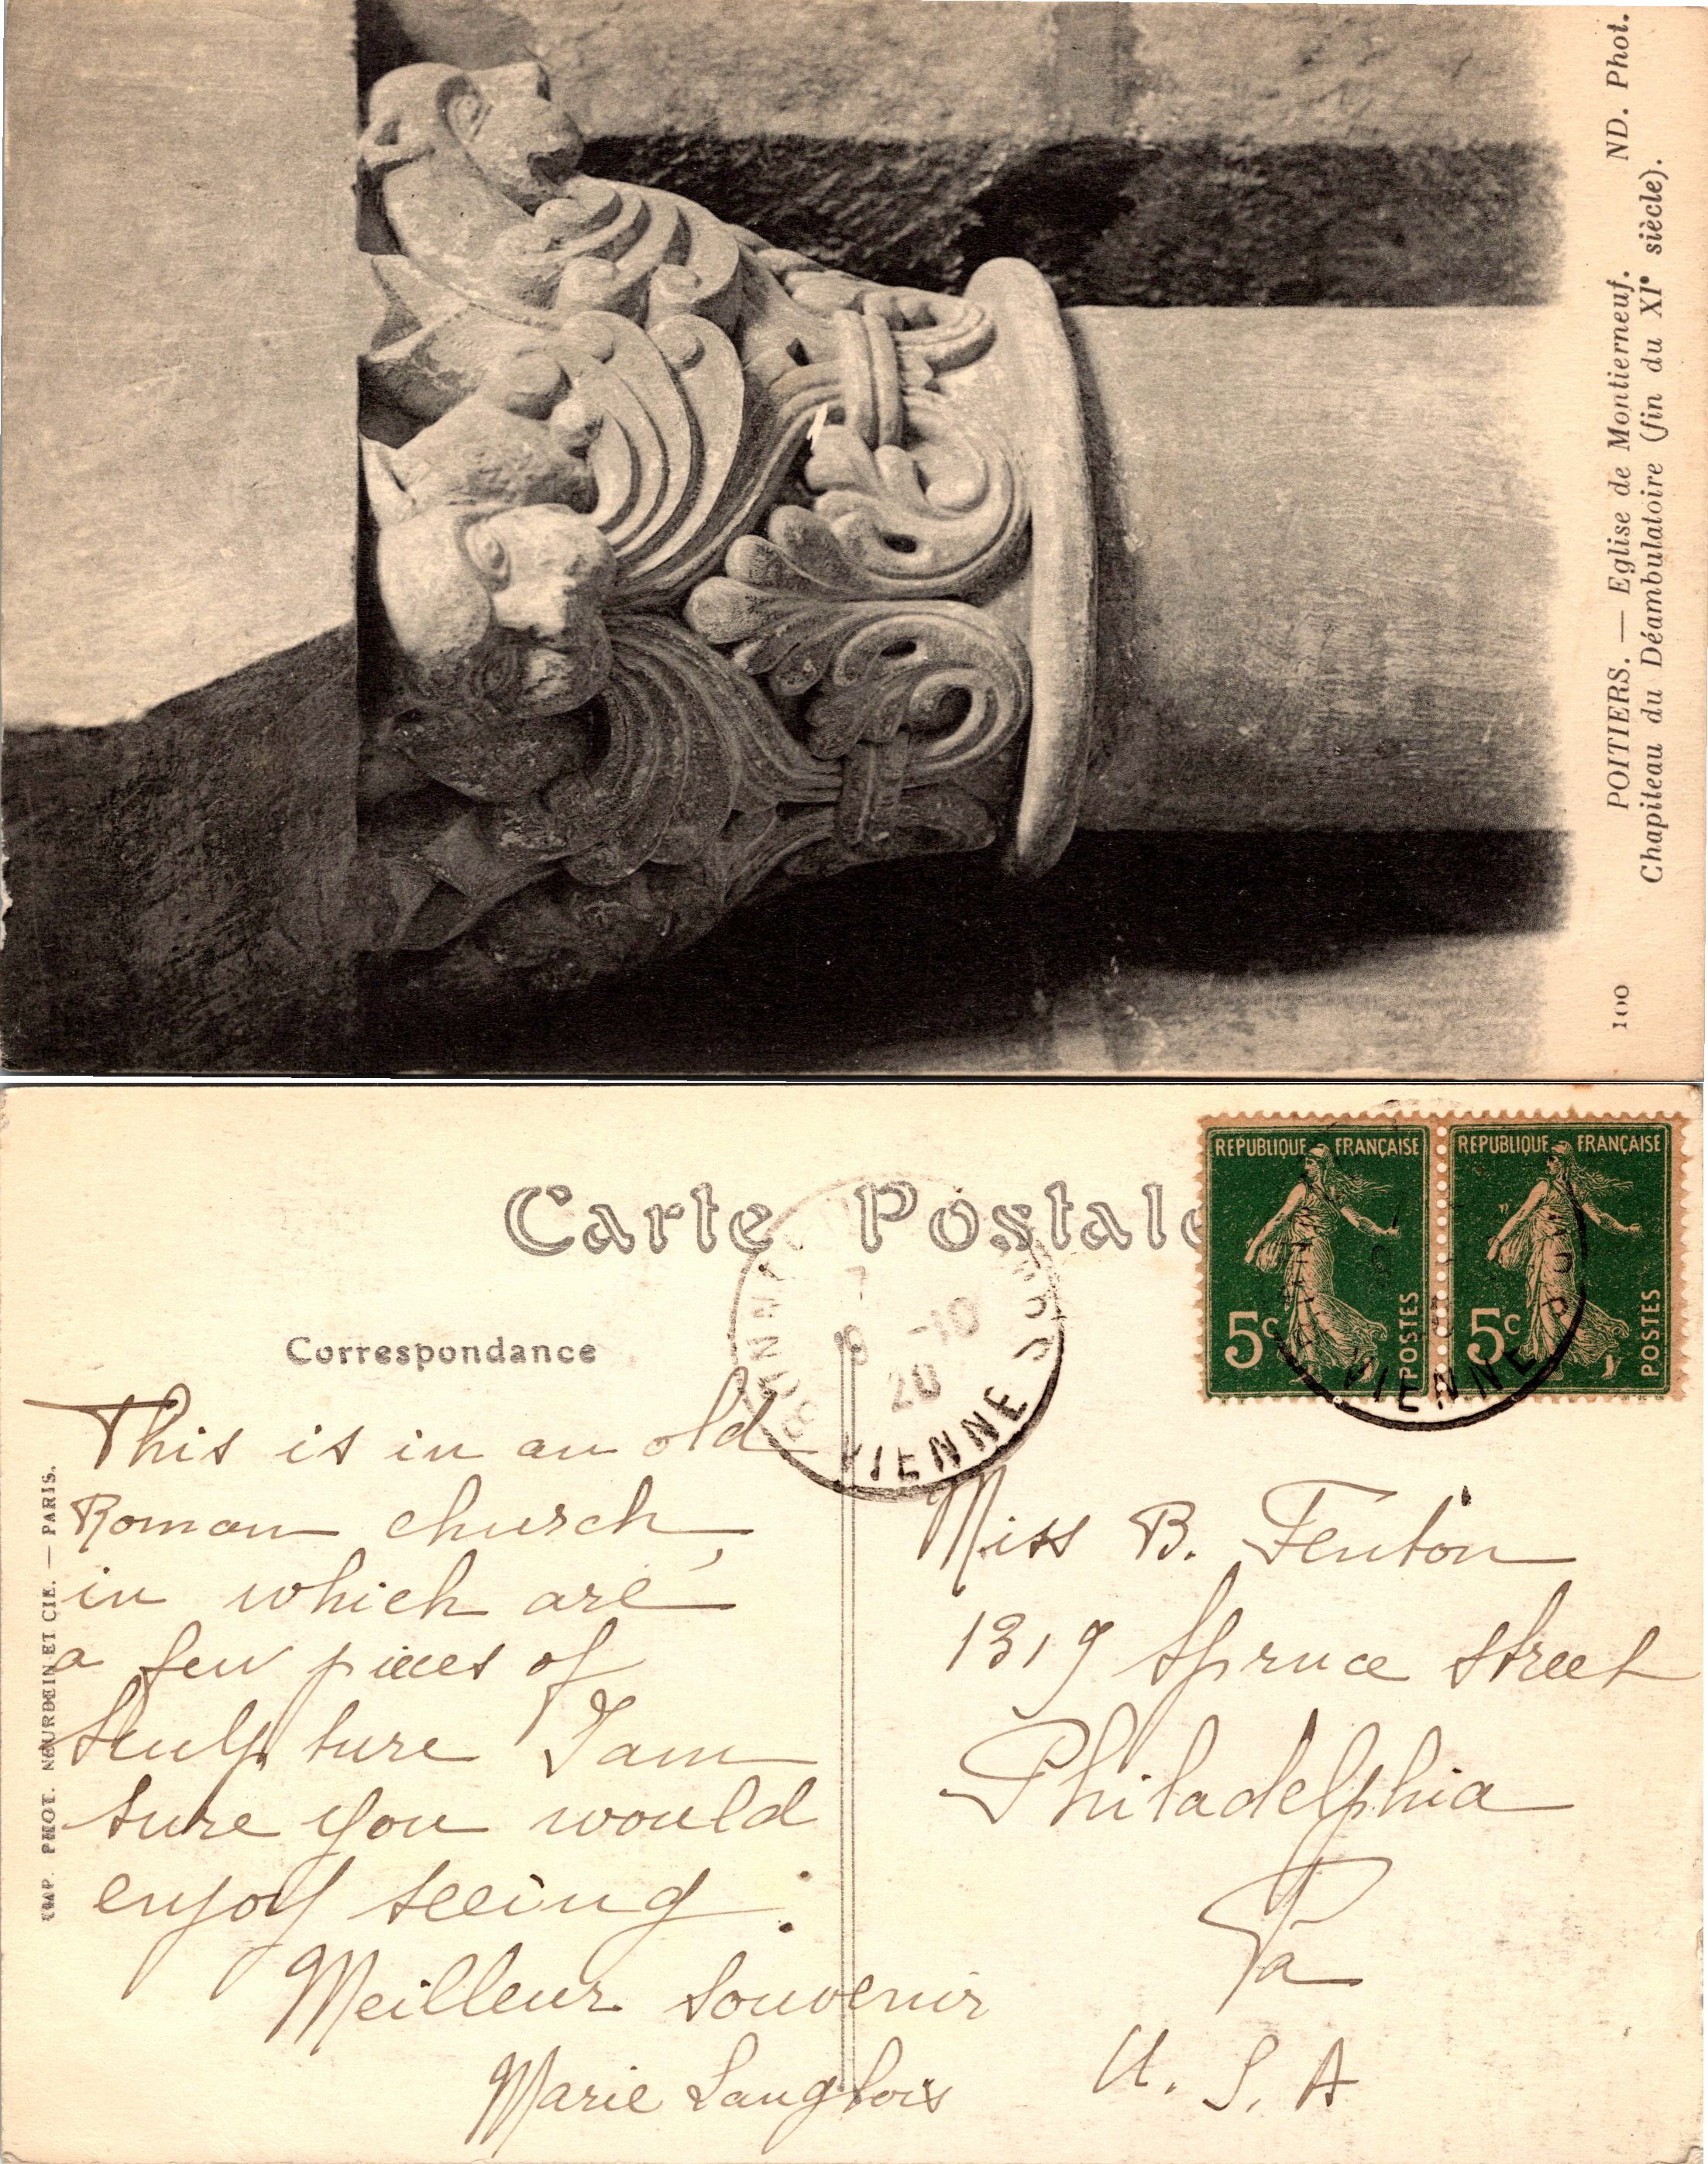 100 POITIERS. — Eglise de Montierneuf. ND. Phot.
Chapiteau du Déambulatoire (fin du XIe siècle).
Carte Postale
REPUBLIQUE FRANÇAISE
5c POSTES
REPUBLIQUE FRANÇAISE
5c POSTES
VIENNE
20 -10
VIENNE
Correspondance
This is in an old
Roman church,
in which are
a few pieces of
sculpture I am
sure you would
enjoy seeing.
Meilleur souvenir
Marie Langlois
Miss B. Fenton
1319 Spruce Street
Philadelphia
Pa
U. S. A
PHOT. NEURDEIN ET CIE. — PARIS.